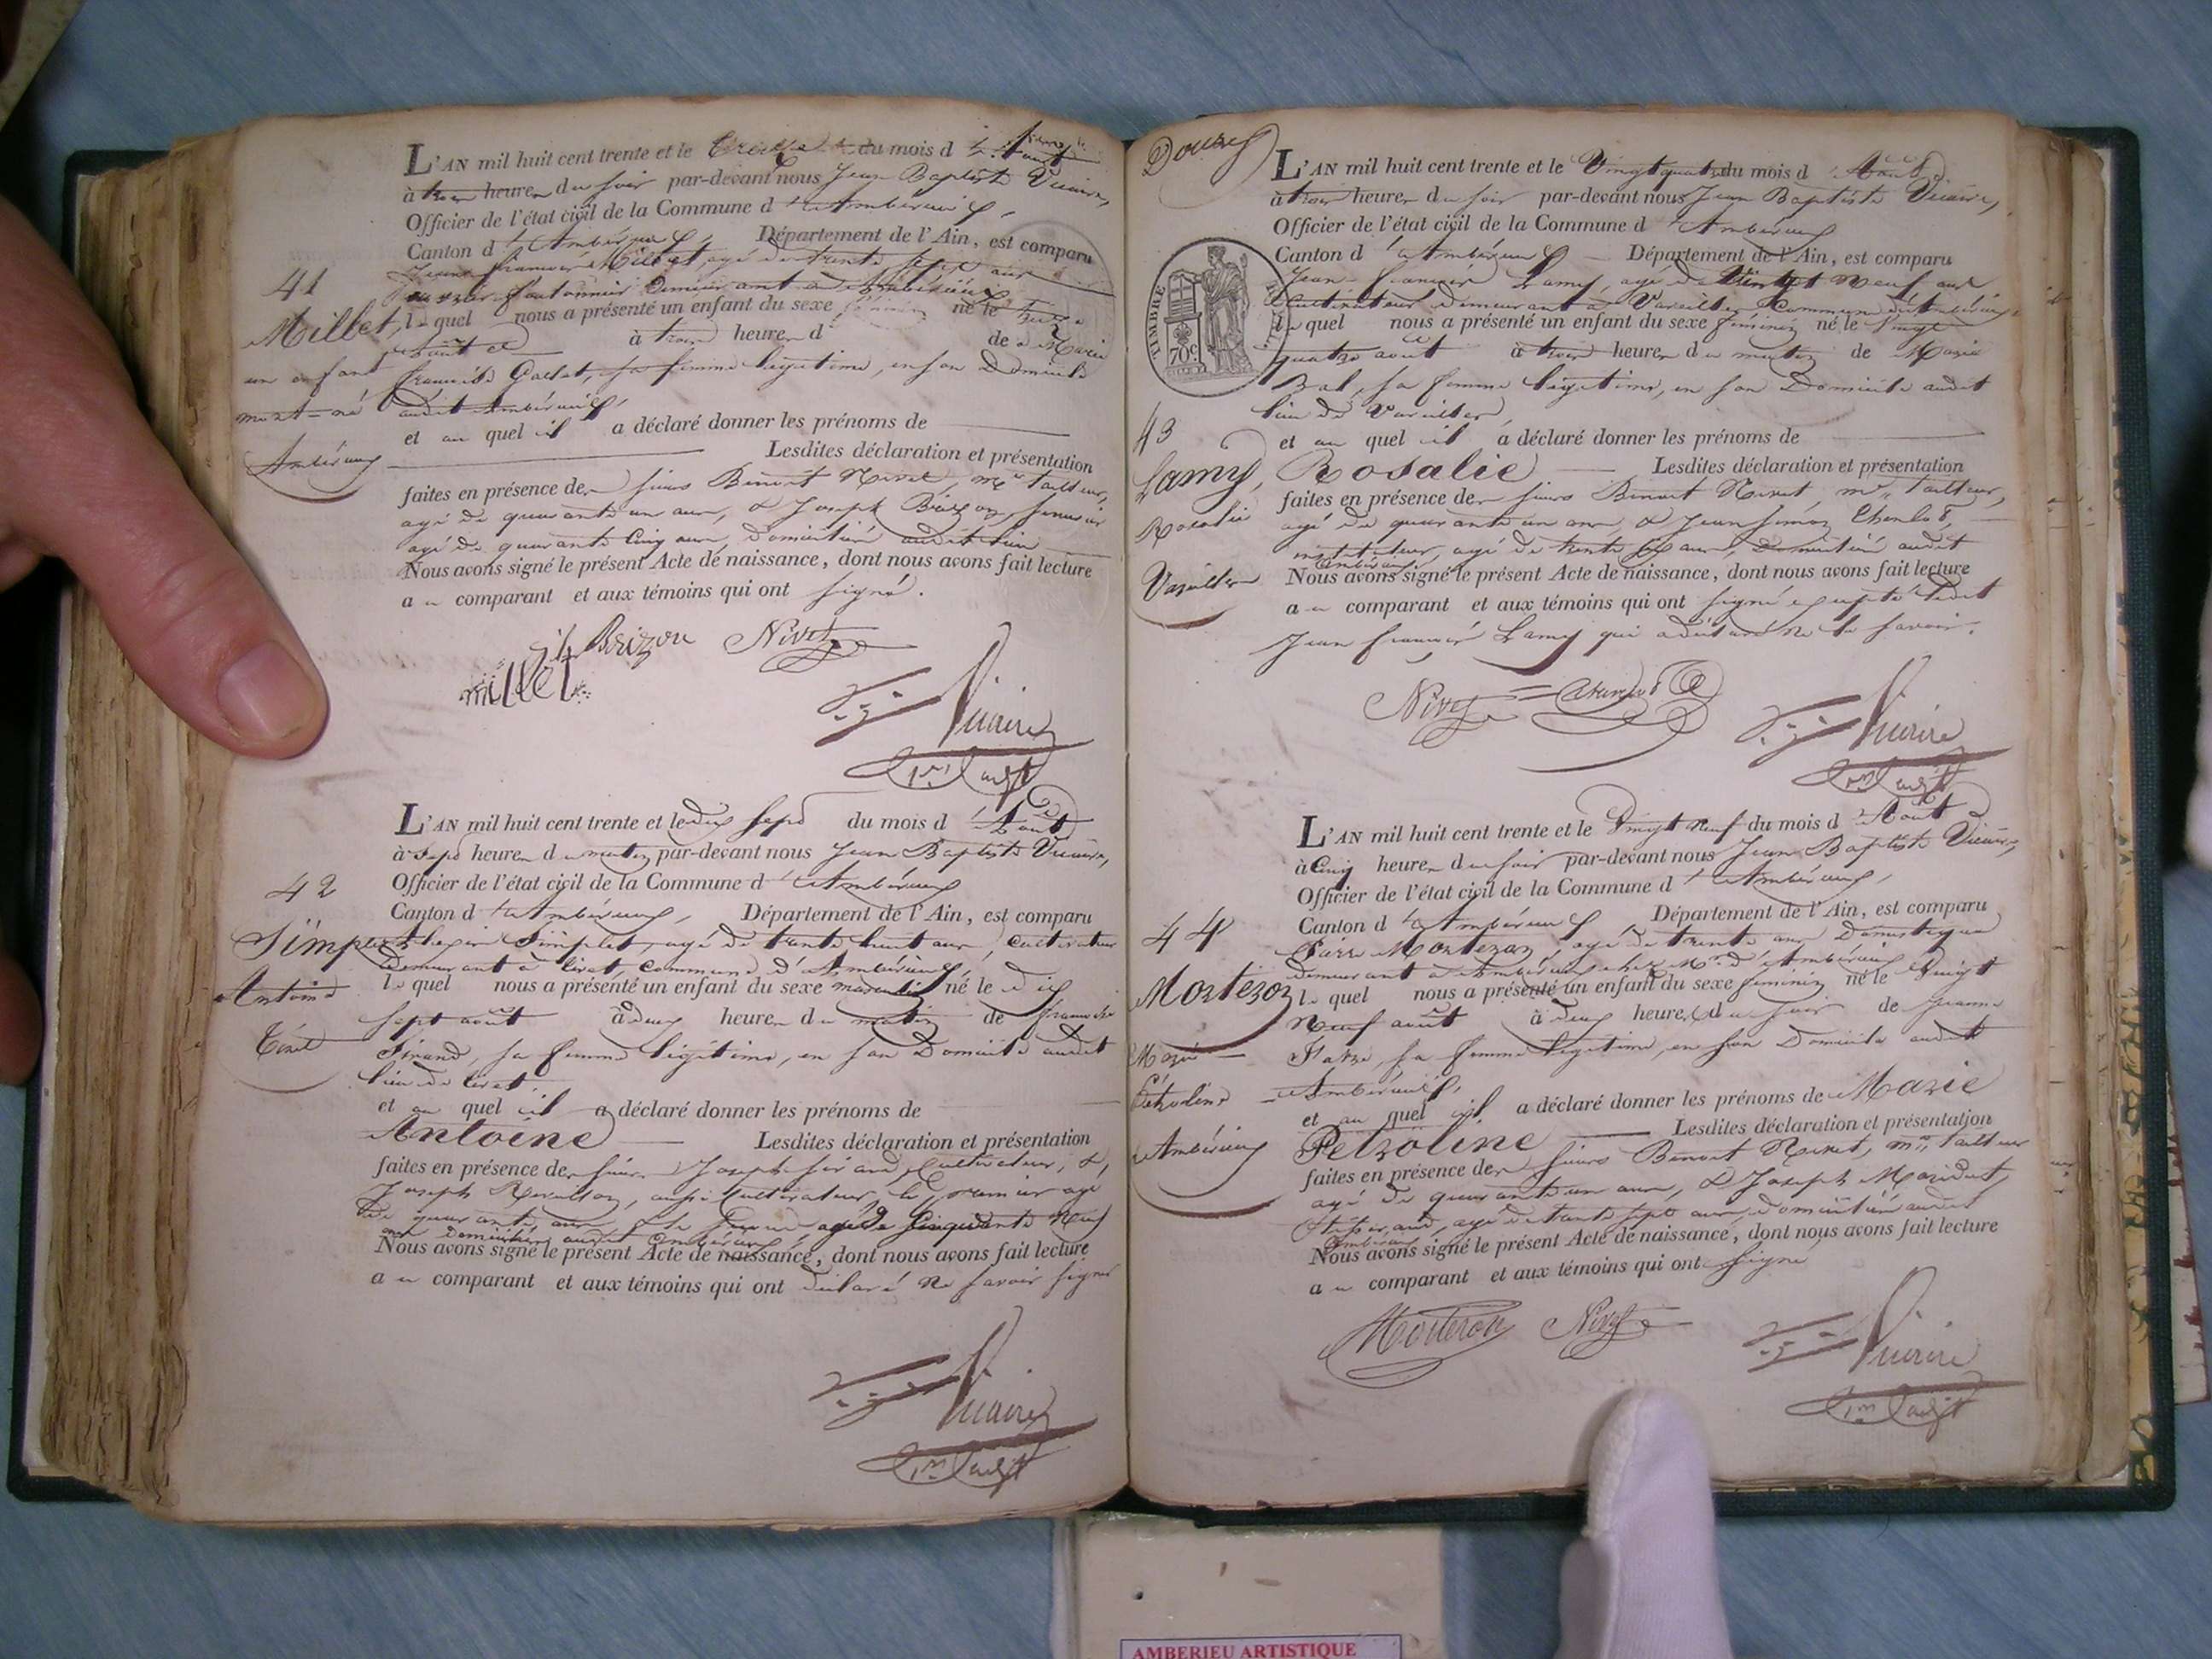 41
Millet,
un enfant
mort-né
Ambérieux
L'AN mil huit cent trente et le treize du mois d'Août
à trois heures du soir par-devant nous Jean Baptiste Vicaire,
Officier de l'état civil de la Commune d'Ambérieux,
Canton d'Ambérieux, Département de l'Ain, est comparu
Jean François Millet, agé de trente ans
demeurant à Ambérieux
lequel nous a présenté un enfant du sexe né le treize
août à trois heures d de Marie
Françoise Gallet, sa femme légitime, en son Domicile
audit Ambérieux,
et au quel il a déclaré donner les prénoms de
Lesdites déclaration et présentation
faites en présence des sieurs Benoit Nivet, md tailleur,
agé de quarante un ans, & Joseph Brizon,
agé de quarante cinq ans, domiciliés audit lieu
Nous avons signé le présent Acte de naissance, dont nous avons fait lecture
au comparant et aux témoins qui ont signé.
Brizon Nivet
millet
Vicaire
42
Simplet
Antoine
Tiret
L'AN mil huit cent trente et le dix sept du mois d'Août
à sept heures du matin par-devant nous Jean Baptiste Vicaire,
Officier de l'état civil de la Commune d'Ambérieux
Canton d'Ambérieux, Département de l'Ain, est comparu
Simplet, agé de trente huit ans, cultivateur
demeurant à Tiret, commune d'Ambérieux,
lequel nous a présenté un enfant du sexe masculin né le dix
sept août à deux heures du matin de Françoise
Sirand, sa femme légitime, en son Domicile audit
lieu de Tiret,
et au quel il a déclaré donner les prénoms de
Antoine Lesdites déclaration et présentation
faites en présence des sieurs Joseph Sirand, Cultivateur, &
Joseph, aussi Cultivateur, le premier agé
de quarante ans, & le second agé de Cinquante neuf
ans domiciliés audit Ambérieux
Nous avons signé le présent Acte de naissance, dont nous avons fait lecture
au comparant et aux témoins qui ont déclaré ne savoir signer
Vicaire
Douze
TIMBRE
70c
43
Lamy,
Rosalie
Vareilles
L'AN mil huit cent trente et le Vingt quatre du mois d'Août
à trois heures du soir par-devant nous Jean Baptiste Vicaire,
Officier de l'état civil de la Commune d'Ambérieux
Canton d'Ambérieux Département de l'Ain, est comparu
Jean-François Lamy, agé de Vingt Neuf ans
Cultivateur demeurant à Vareilles Commune d'Ambérieux,
lequel nous a présenté un enfant du sexe féminin né le Vingt
quatre août à trois heures du matin de Marie
Bal, sa femme légitime, en son Domicile audit
lieu de Vareilles,
et au quel il a déclaré donner les prénoms de
Rosalie Lesdites déclaration et présentation
faites en présence des sieurs Benoit Nivet, md tailleur,
agé de quarante un ans, & Jean
instituteur, agé de trente six ans, domiciliés audit
Ambérieux
Nous avons signé le présent Acte de naissance, dont nous avons fait lecture
au comparant et aux témoins qui ont signé excepté ledit
Jean François Lamy qui a déclaré ne le savoir.
Nivet
Vicaire
44
Mortezon
Marie
Petroline
Ambérieux
L'AN mil huit cent trente et le Vingt Neuf du mois d'Août
à Cinq heures du soir par-devant nous Jean Baptiste Vicaire,
Officier de l'état civil de la Commune d'Ambérieux,
Canton d'Ambérieux Département de l'Ain, est comparu
Pierre Mortezon, agé de trente ans Domestique
demeurant à Ambérieux chez Mr d'Ambérieux
lequel nous a présenté un enfant du sexe féminin né le Vingt
Neuf août à deux heures du soir de Jeanne
sa femme légitime, en son Domicile audit
Ambérieux,
et au quel il a déclaré donner les prénoms de Marie
Petroline Lesdites déclaration et présentation
faites en présence des sieurs Benoit Nivet, md tailleur
agé de quarante un ans, & Joseph
agé de trente sept ans, domiciliés audit
Ambérieux
Nous avons signé le présent Acte de naissance, dont nous avons fait lecture
au comparant et aux témoins qui ont signé
Morteron Nivet
Vicaire
AMBERIEU ARTISTIQUE